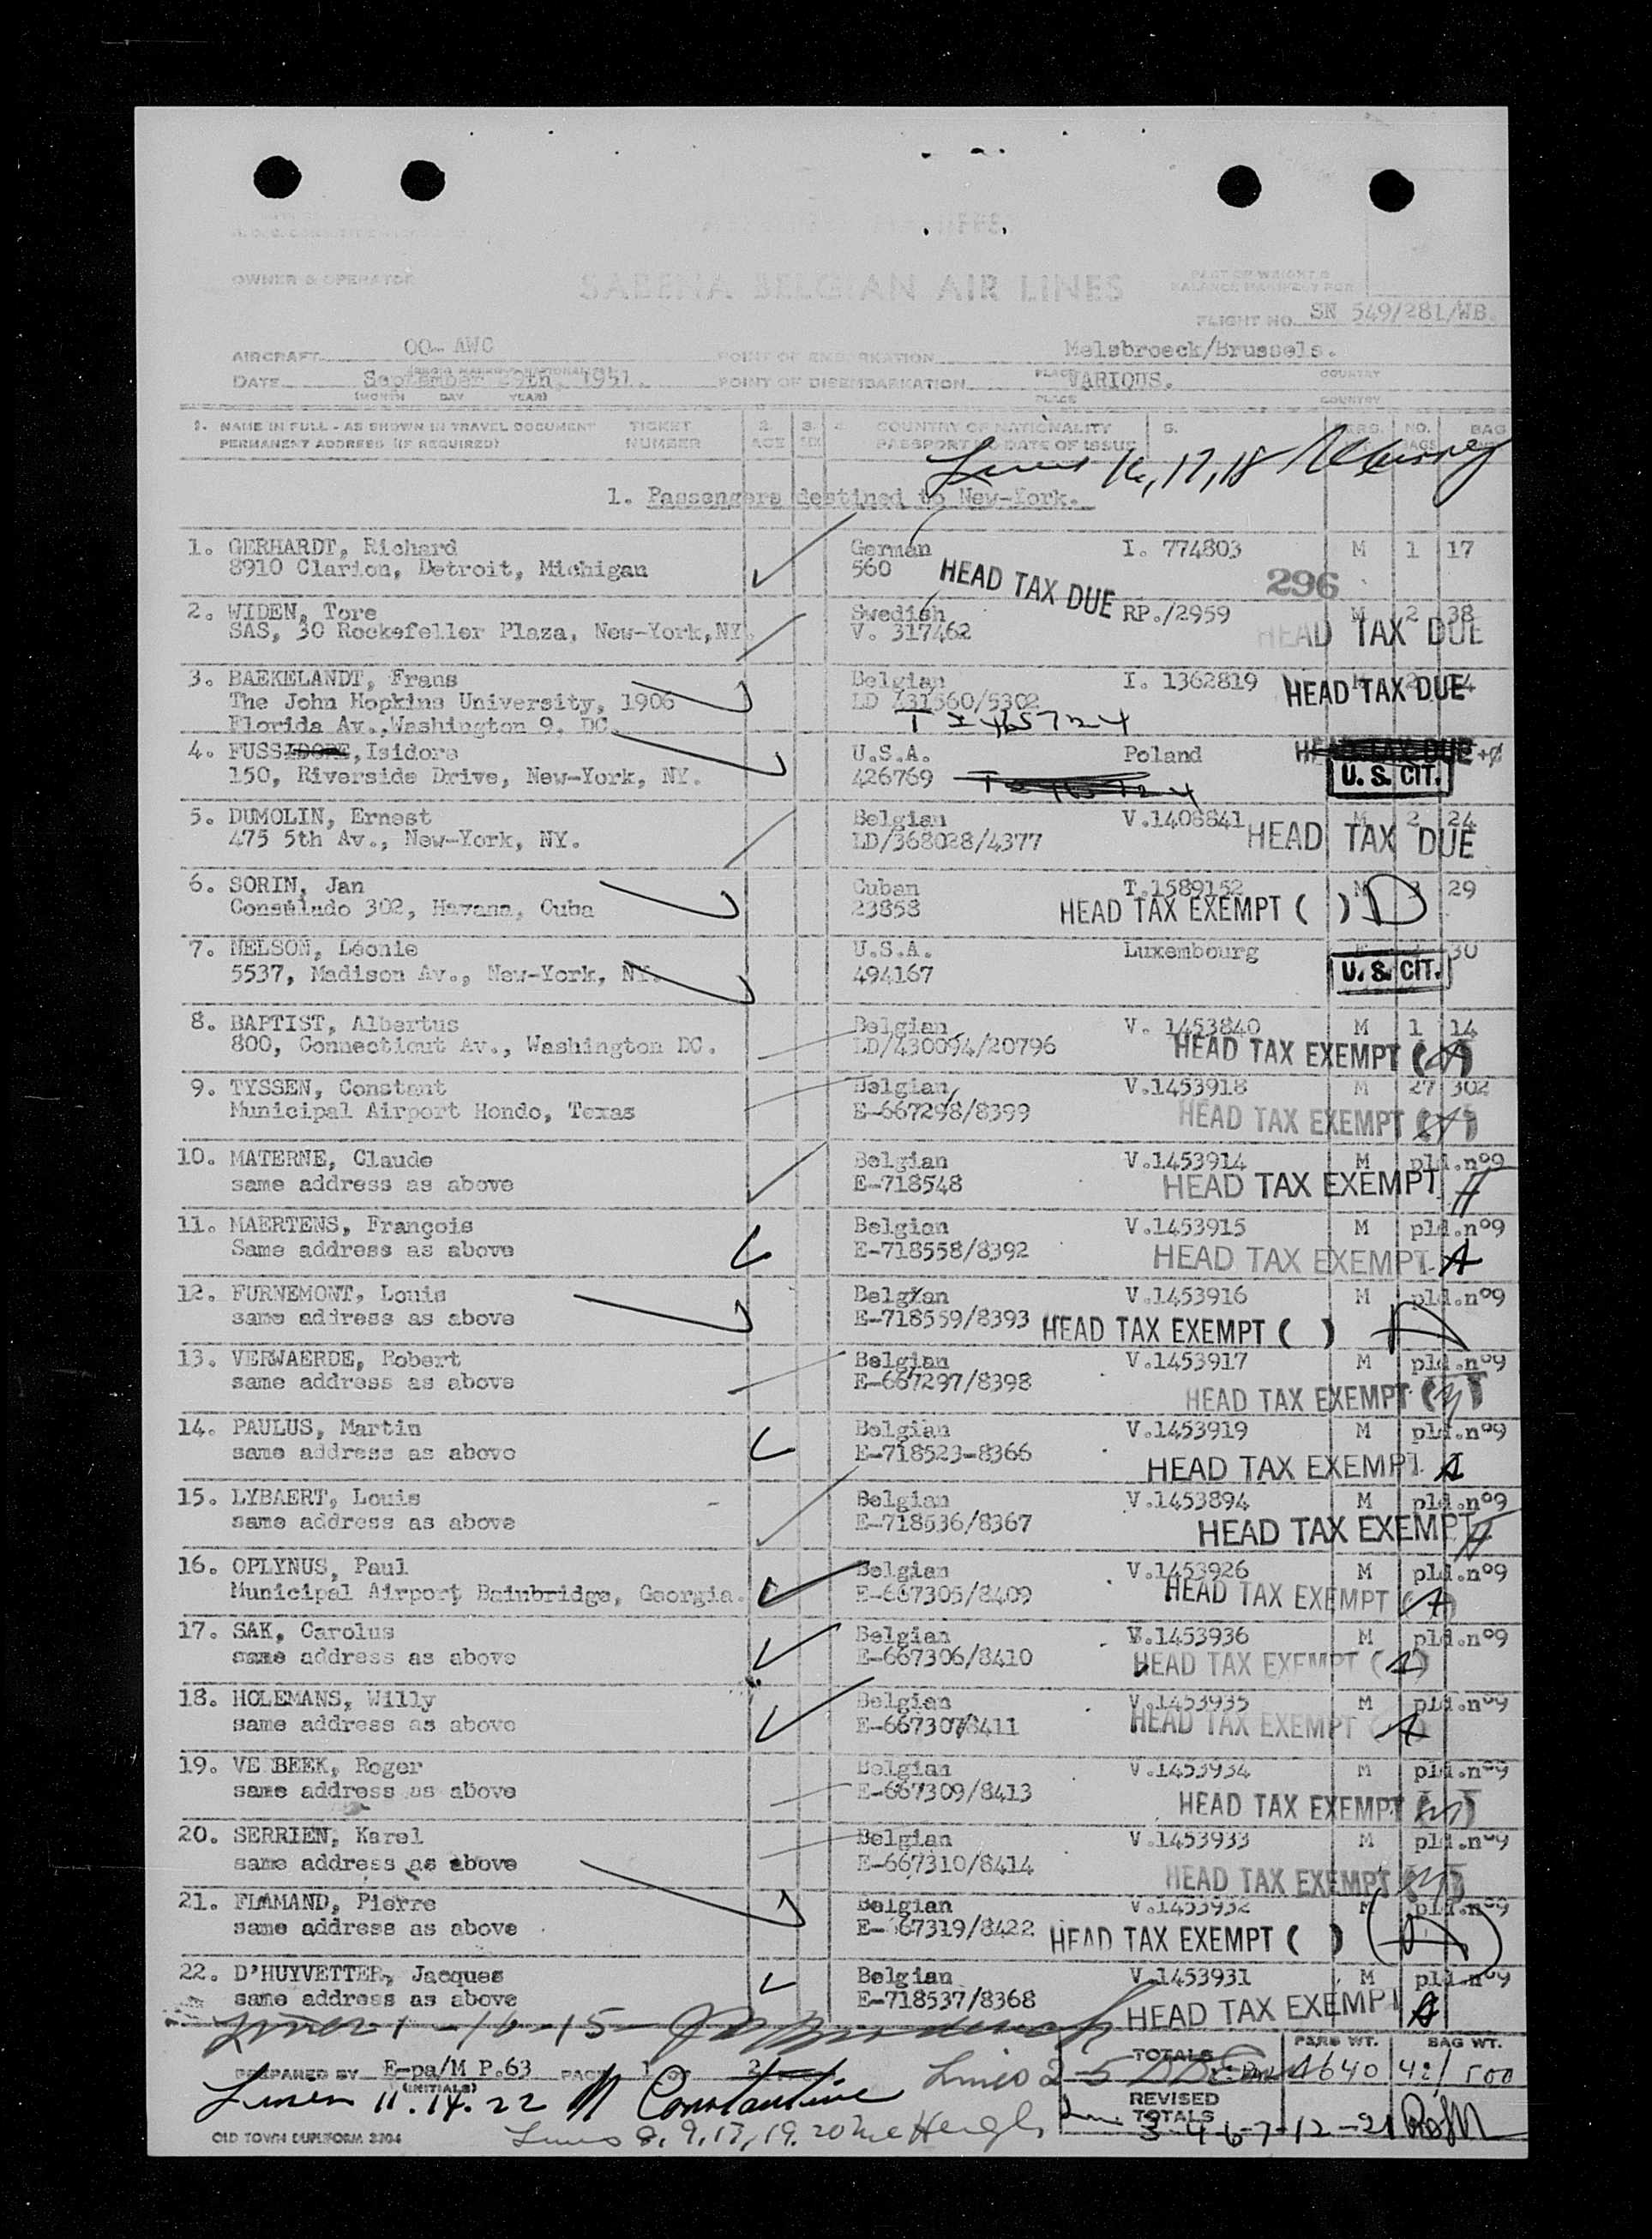 OWNER & OPERATOR
SABENA BELGIAN AIR LINES
FLIGHT NO. SN 549/281/WB.
AIRCRAFT OO- AWC POINT OF EMBARKATION Melsbroeck/Brussels.
DATE September 29th, 1951. POINT OF DISEMBARKATION VARIOUS.
(MONTH DAY YEAR) PLACE COUNTRY
1. NAME IN FULL - AS SHOWN IN TRAVEL DOCUMENT TICKET 2. 3. 4. COUNTRY OF NATIONALITY 5. PERS. NO. BAG
PERMANENT ADDRESS (IF REQUIRED) NUMBER AGE SEX PASSPORT NO DATE OF ISSUE BAGS
Lines 16, 17, 18
1. Passengers destined to New-York.
1. GERHARDT, Richard German I. 774803 M 1 17
8910 Clarion, Detroit, Michigan 560 HEAD TAX DUE 296
2. WIDEN, Tore Swedish RP./2959 M 2 38
SAS, 30 Rockefeller Plaza, New-York, NY. V. 317462 HEAD TAX DUE
3. BAEKELANDT, Frans Belgian I. 1362819 HEAD TAX DUE
The John Hopkins University, 1906 LD 431560/5302
Florida Av., Washington 9, DC. T 2465724
4. FUSS, Isidore U.S.A. Poland HEAD TAX DUE
150, Riverside Drive, New-York, NY. 426769 U. S. CIT.
5. DUMOLIN, Ernest Belgian V.1408841 M 2 24
475 5th Av., New-York, NY. LD/368028/4377 HEAD TAX DUE
6. SORIN, Jan Cuban T.1589152 M 29
Consulado 302, Havana, Cuba 23858 HEAD TAX EXEMPT ( )
7. NELSON, Léonie U.S.A. Luxembourg 30
5537, Madison Av., New-York, NY. 494167 U. S. CIT.
8. BAPTIST, Albertus Belgian V. 1453840 M 1 14
800, Connecticut Av., Washington DC. LD/430094/20796 HEAD TAX EXEMPT (A)
9. TYSSEN, Constant Belgian V.1453918 M 27 302
Municipal Airport Hondo, Texas E-667298/8399 HEAD TAX EXEMPT (A)
10. MATERNE, Claude Belgian V.1453914 M pld.nº9
same address as above E-718548 HEAD TAX EXEMPT A
11. MAERTENS, François Belgian V.1453915 M pld.nº9
Same address as above E-718558/8392 HEAD TAX EXEMPT A
12. FURNEMONT, Louis Belgian V.1453916 M pld.nº9
same address as above E-718559/8393 HEAD TAX EXEMPT ( ) A
13. VERWAERDE, Robert Belgian V.1453917 M pld.nº9
same address as above E-667297/8398 HEAD TAX EXEMPT
14. PAULUS, Martin Belgian V.1453919 M pld.nº9
same address as above E-718523-8366 HEAD TAX EXEMPT A
15. LYBAERT, Louis Belgian V.1453894 M pld.nº9
same address as above E-718536/8367 HEAD TAX EXEMPT A
16. OPLYNUS, Paul Belgian V.1453926 M pld.nº9
Municipal Airport Bainbridge, Georgia. E-667305/8409 HEAD TAX EXEMPT (A)
17. SAK, Carolus Belgian V.1453936 M pld.nº9
same address as above E-667306/8410 HEAD TAX EXEMPT (A)
18. HOLEMANS, Willy Belgian V.1453935 M pld.nº9
same address as above E-667307/8411 HEAD TAX EXEMPT A
19. VE BEEK, Roger Belgian V.1453934 M pld.nº9
same address as above E-667309/8413 HEAD TAX EXEMPT
20. SERRIEN, Karel Belgian V.1453933 M pld.nº9
same address as above E-667310/8414 HEAD TAX EXEMPT
21. FLAMAND, Pierre Belgian V.1453932 M pld.nº9
same address as above E-667319/8422 HEAD TAX EXEMPT ( ) (A)
22. D'HUYVETTER, Jacques Belgian V.1453931 M pld.nº9
same address as above E-718537/8368 HEAD TAX EXEMPT A
Lines 1-10-15
PREPARED BY E-pa/M P.63 PAGE 1 OF 2 TOTALS PERS WT. 1640 BAG WT. 42/ 500
(INITIALS)
Lines 2-5
Lines 11. 14. 22 M Constantine REVISED TOTALS
Lines 8, 9, 13, 19, 20 Lines 3-4-6-7-12-21
OLD TOWN DUPLIFORM 3704